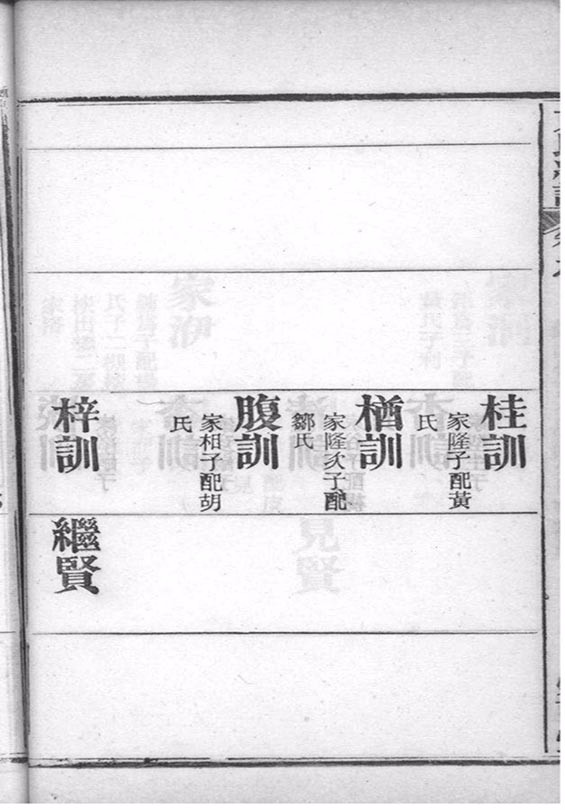 桂訓
家隆子配黃
氏
楢訓
家隆次子配
鄒氏
腹訓
家相子配胡
氏
梓訓
繼賢